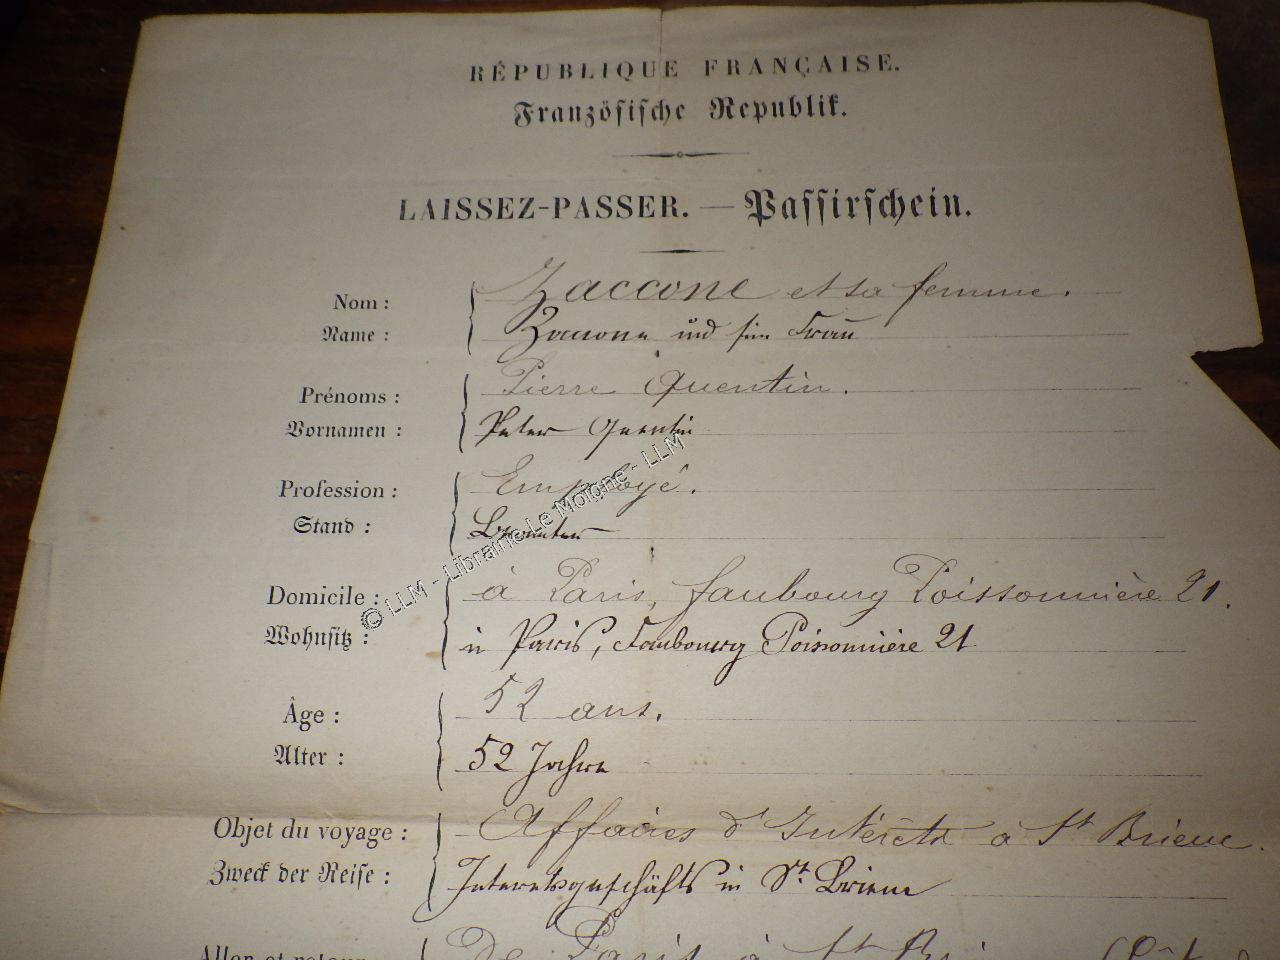 RÉPUBLIQUE FRANÇAISE.
Französische Republik.
LAISSEZ-PASSER. — Passirschein.
Nom : Zaccone et sa femme.
Name : Zaccone und sein Frau
Prénoms : Pierre Quentin.
Vornamen : Peter Quentin
Profession : Employé.
Stand : Beamter
© LLM - Librairie Le Moigne - LLM
Domicile : à Paris, faubourg Poissonnière 21.
Wohnsitz : in Paris, Faubourg Poissonnière 21
Âge : 52 ans.
Alter : 52 Jahre
Objet du voyage : Affaires d'Intérêts à St Brieuc.
Zweck der Reise : in St. Brieuc
Aller et retour De Paris à St